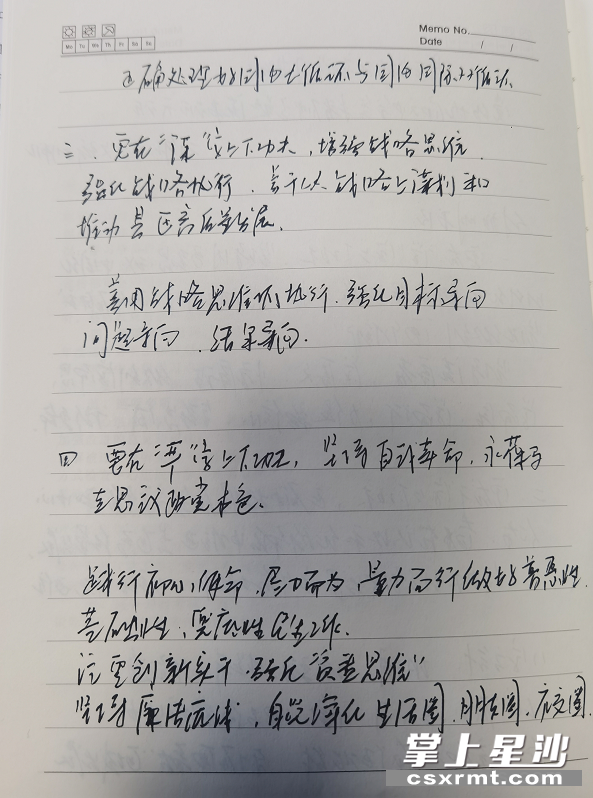 Memo No.
Date / /
Mo Tu We Th Fr Sa Su
正确处理好国内大循环与国内国际双循环
三、要在“谋”字上下功夫,增强战略思维
强化战略执行,善于从战略上谋划和
推动县区高质量发展.
善用战略思维抓执行,强化目标导向
问题导向、结果导向.
四 要在“严”字上下功夫,坚持自我革命,永葆马
克思主义政党本色.
践行初心使命,尽力而为,量力而行做好普惠性
基础性,兜底性民生工作.
注重创新实干,强化“负重思维”
坚持廉洁底线,自觉净化生活圈,朋友圈,社交圈.
掌上星沙
csxrmt.com